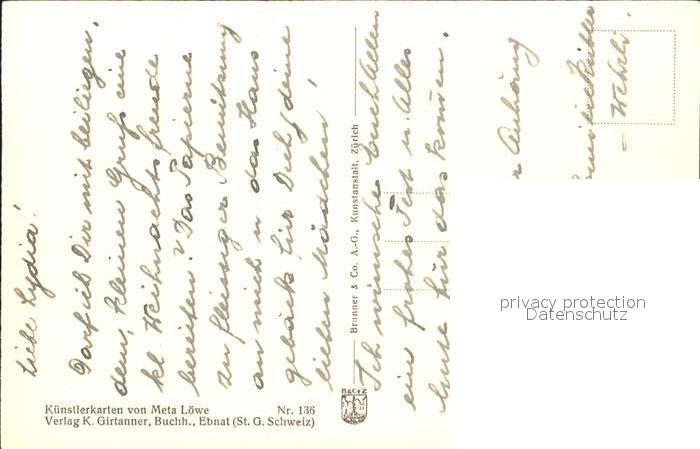 Liebe Lydia!
Darf ich Dir mit beiliegen.
dem, kleinen Gruß eine
kl. Weihnachtsfreude
bereiten? Das Papierne
zu fleissiger Benützung
an mich u das Haus
gebäck für Dich, deine
lieben Mädchen!
Ich wünsche Euch Allen
ein frohes Fest u. Alles
Gute für das kommen.
Anhang
Wehrli.
Brunner & Co. A.-G., Kunstanstalt, Zürich
B&C°Z
Künstlerkarten von Meta Löwe Nr. 136
Verlag K. Girtanner, Buchh., Ebnat (St. G. Schweiz)
privacy protection
Datenschutz